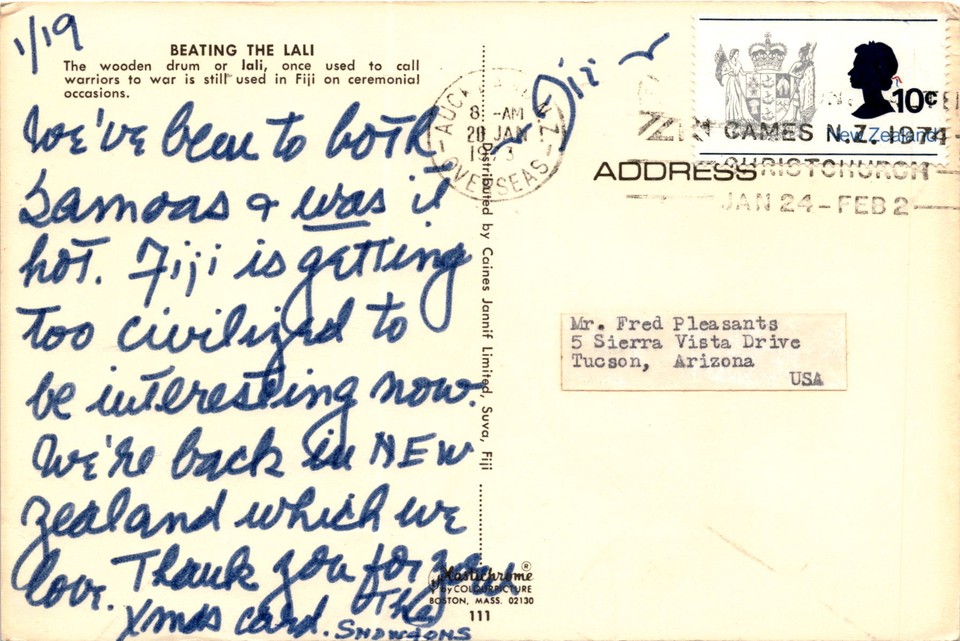 1/19
BEATING THE LALI
The wooden drum or lali, once used to call
warriors to war is still used in Fiji on ceremonial
occasions.
We've been to both
Samoas & was it
hot. Fiji is getting
too civilized to
be interesting now.
We're back in NEW
Zealand which we
love. Thank you for your
Xmas card. The
SNOWDONS
Distributed by Caines Jannif Limited, Suva, Fiji
Plastichrome ®
by COLOURPICTURE
BOSTON, MASS. 02130
111
AUCKLAND N.Z.
8 -AM
20 JAN
1973
OVERSEAS
10c
New Zealand
GAMES N.Z. 1974
CHRISTCHURCH
JAN 24 - FEB 2
ADDRESS
Mr. Fred Pleasants
5 Sierra Vista Drive
Tucson, Arizona
USA